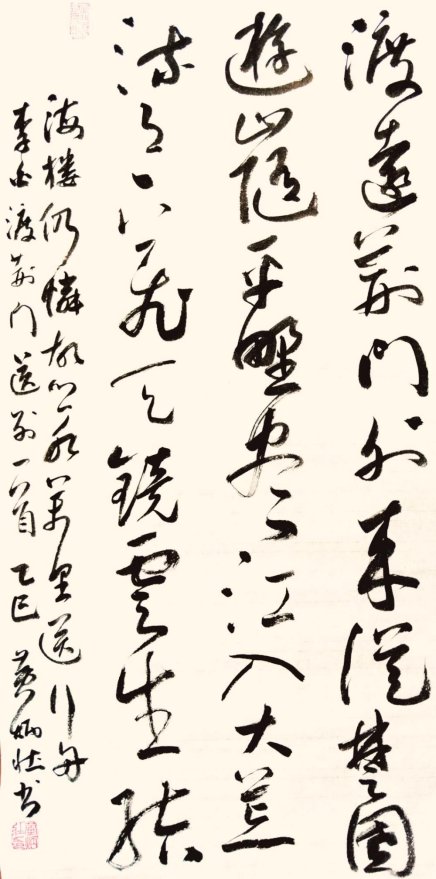 渡遠荊門外來從楚國
遊山隨平野盡江入大荒
流月下飛天鏡雲生結
海樓仍憐故鄉水萬里送行舟
李白渡荊門送別一首 乙巳 黃炳書